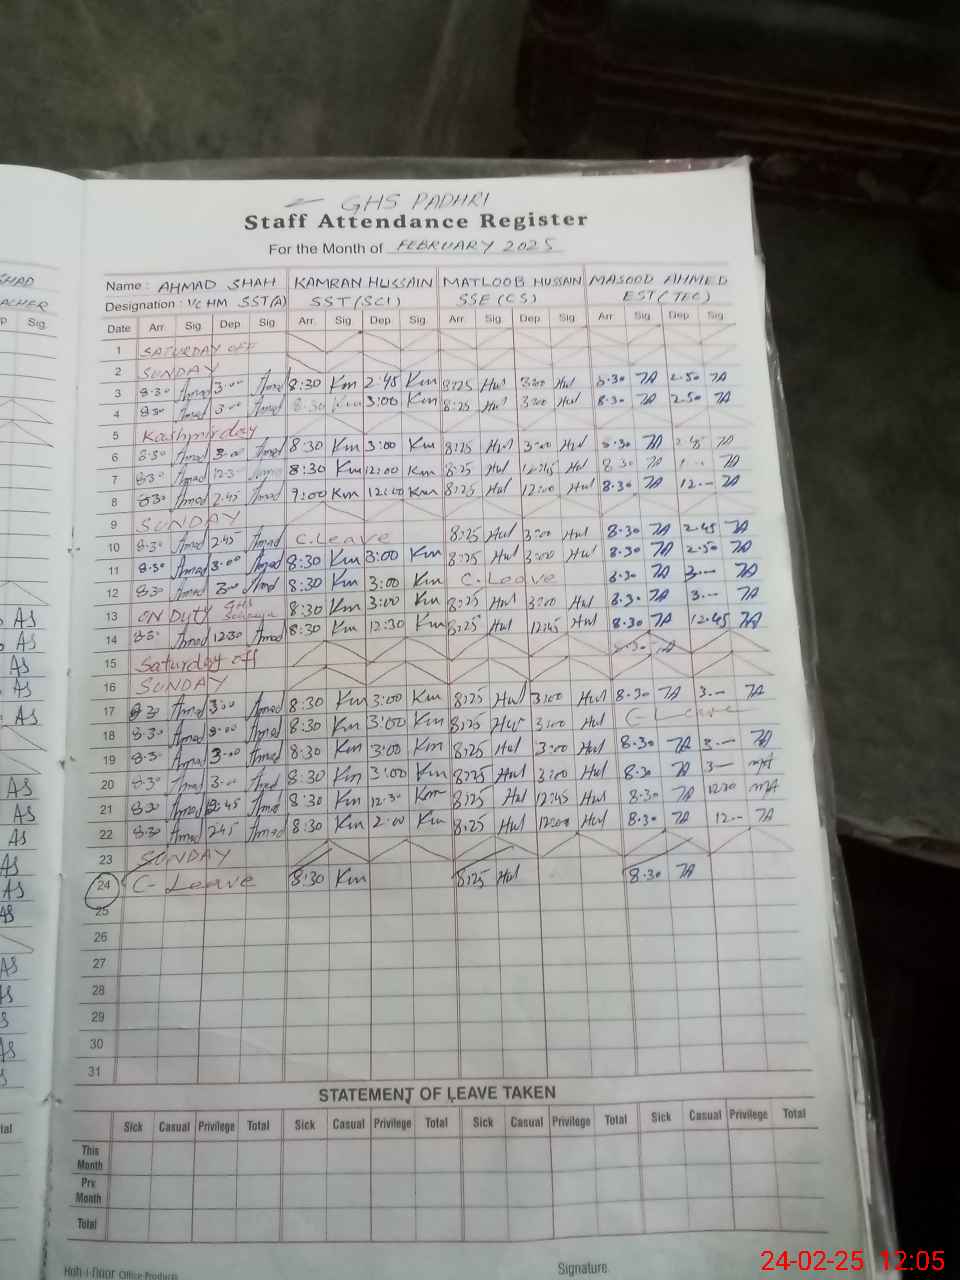 GHS PADHRI
Staff Attendance Register
For the Month of FEBRUARY 2025
SHAD
ACHER
Sig.
Name: AHMAD SHAH KAMRAN HUSSAIN MATLOOB HUSSAIN MASOOD AHMED
Designation: I/C HM SST(A) SST(SCI) SSE(CS) EST(TEC)
Date Arr. Sig. Dep Sig. Arr. Sig. Dep Sig. Arr. Sig. Dep Sig. Arr. Sig. Dep Sig.
1 SATURDAY OFF
2 SUNDAY
3 8:30 Amad 3:00 Amad 8:30 Km 2:45 Km 8:25 Hul 3:00 Hul 8.30 TA 2.50 TA
4 8:30 Amad 3:00 Amad 8:30 Km 3:00 Km 8:25 Hul 3:00 Hul 8.30 TA 2.50 TA
5 Kashmir day
6 8:30 Amad 3:00 Amad 8:30 Km 3:00 Km 8:25 Hul 3:00 Hul 8.30 TA 2.45 TA
7 8:30 Amad 12:30 Amad 8:30 Km 12:00 Km 8:25 Hul 12:45 Hul 8.30 TA TA
8 8:30 Amad 2:45 Amad 9:00 Km 12:00 Km 8:25 Hul 12:00 Hul 8.30 TA 12.-- TA
9 SUNDAY
10 8:30 Amad 2:45 Amad C.Leave 8:25 Hul 3:00 Hul 8.30 TA 2.45 TA
11 8:30 Amad 3:00 Amad 8:30 Km 3:00 Km 8:25 Hul 3:00 Hul 8.30 TA 2.50 TA
12 8:30 Amad 3:00 Amad 8:30 Km 3:00 Km C-Leave 8.30 TA 3.-- TA
13 ON DUTY GHS 8:30 Km 3:00 Km 8:25 Hul 3:00 Hul 8.30 TA 3.-- TA
14 8:30 Amad 12:30 Amad 8:30 Km 12:30 Km 8:25 Hul 12:45 Hul 8.30 TA 12.45 TA
15 Saturday off 8.30 TA
16 SUNDAY
17 8:30 Amad 3:00 Amad 8:30 Km 3:00 Km 8:25 Hul 3:00 Hul 8.30 TA 3.-- TA
18 8:30 Amad 3:00 Amad 8:30 Km 3:00 Km 8:25 Hul 3:00 Hul C-Leave
19 8:30 Amad 3:00 Amad 8:30 Km 3:00 Km 8:25 Hul 3:00 Hul 8.30 TA 3.-- TA
20 8:30 Amad 3:00 Amad 8:30 Km 3:00 Km 8:25 Hul 3:00 Hul 8.30 TA 3-- MA
21 8:30 Amad 12:45 Amad 8:30 Km 12:30 Km 8:25 Hul 12:45 Hul 8.30 TA 12.30 MA
22 8:30 Amad 2:45 Amad 8:30 Km 2:00 Km 8:25 Hul 12:00 Hul 8.30 TA 12.-- TA
23 SUNDAY
24 C-Leave 8:30 Km 8:25 Hul 8.30 TA
25
26
27
28
29
30
31
STATEMENT OF LEAVE TAKEN
Sick Casual Privilege Total Sick Casual Privilege Total Sick Casual Privilege Total Sick Casual Privilege Total
This Month
Prv Month
Total
Signature
24-02-25 12:05